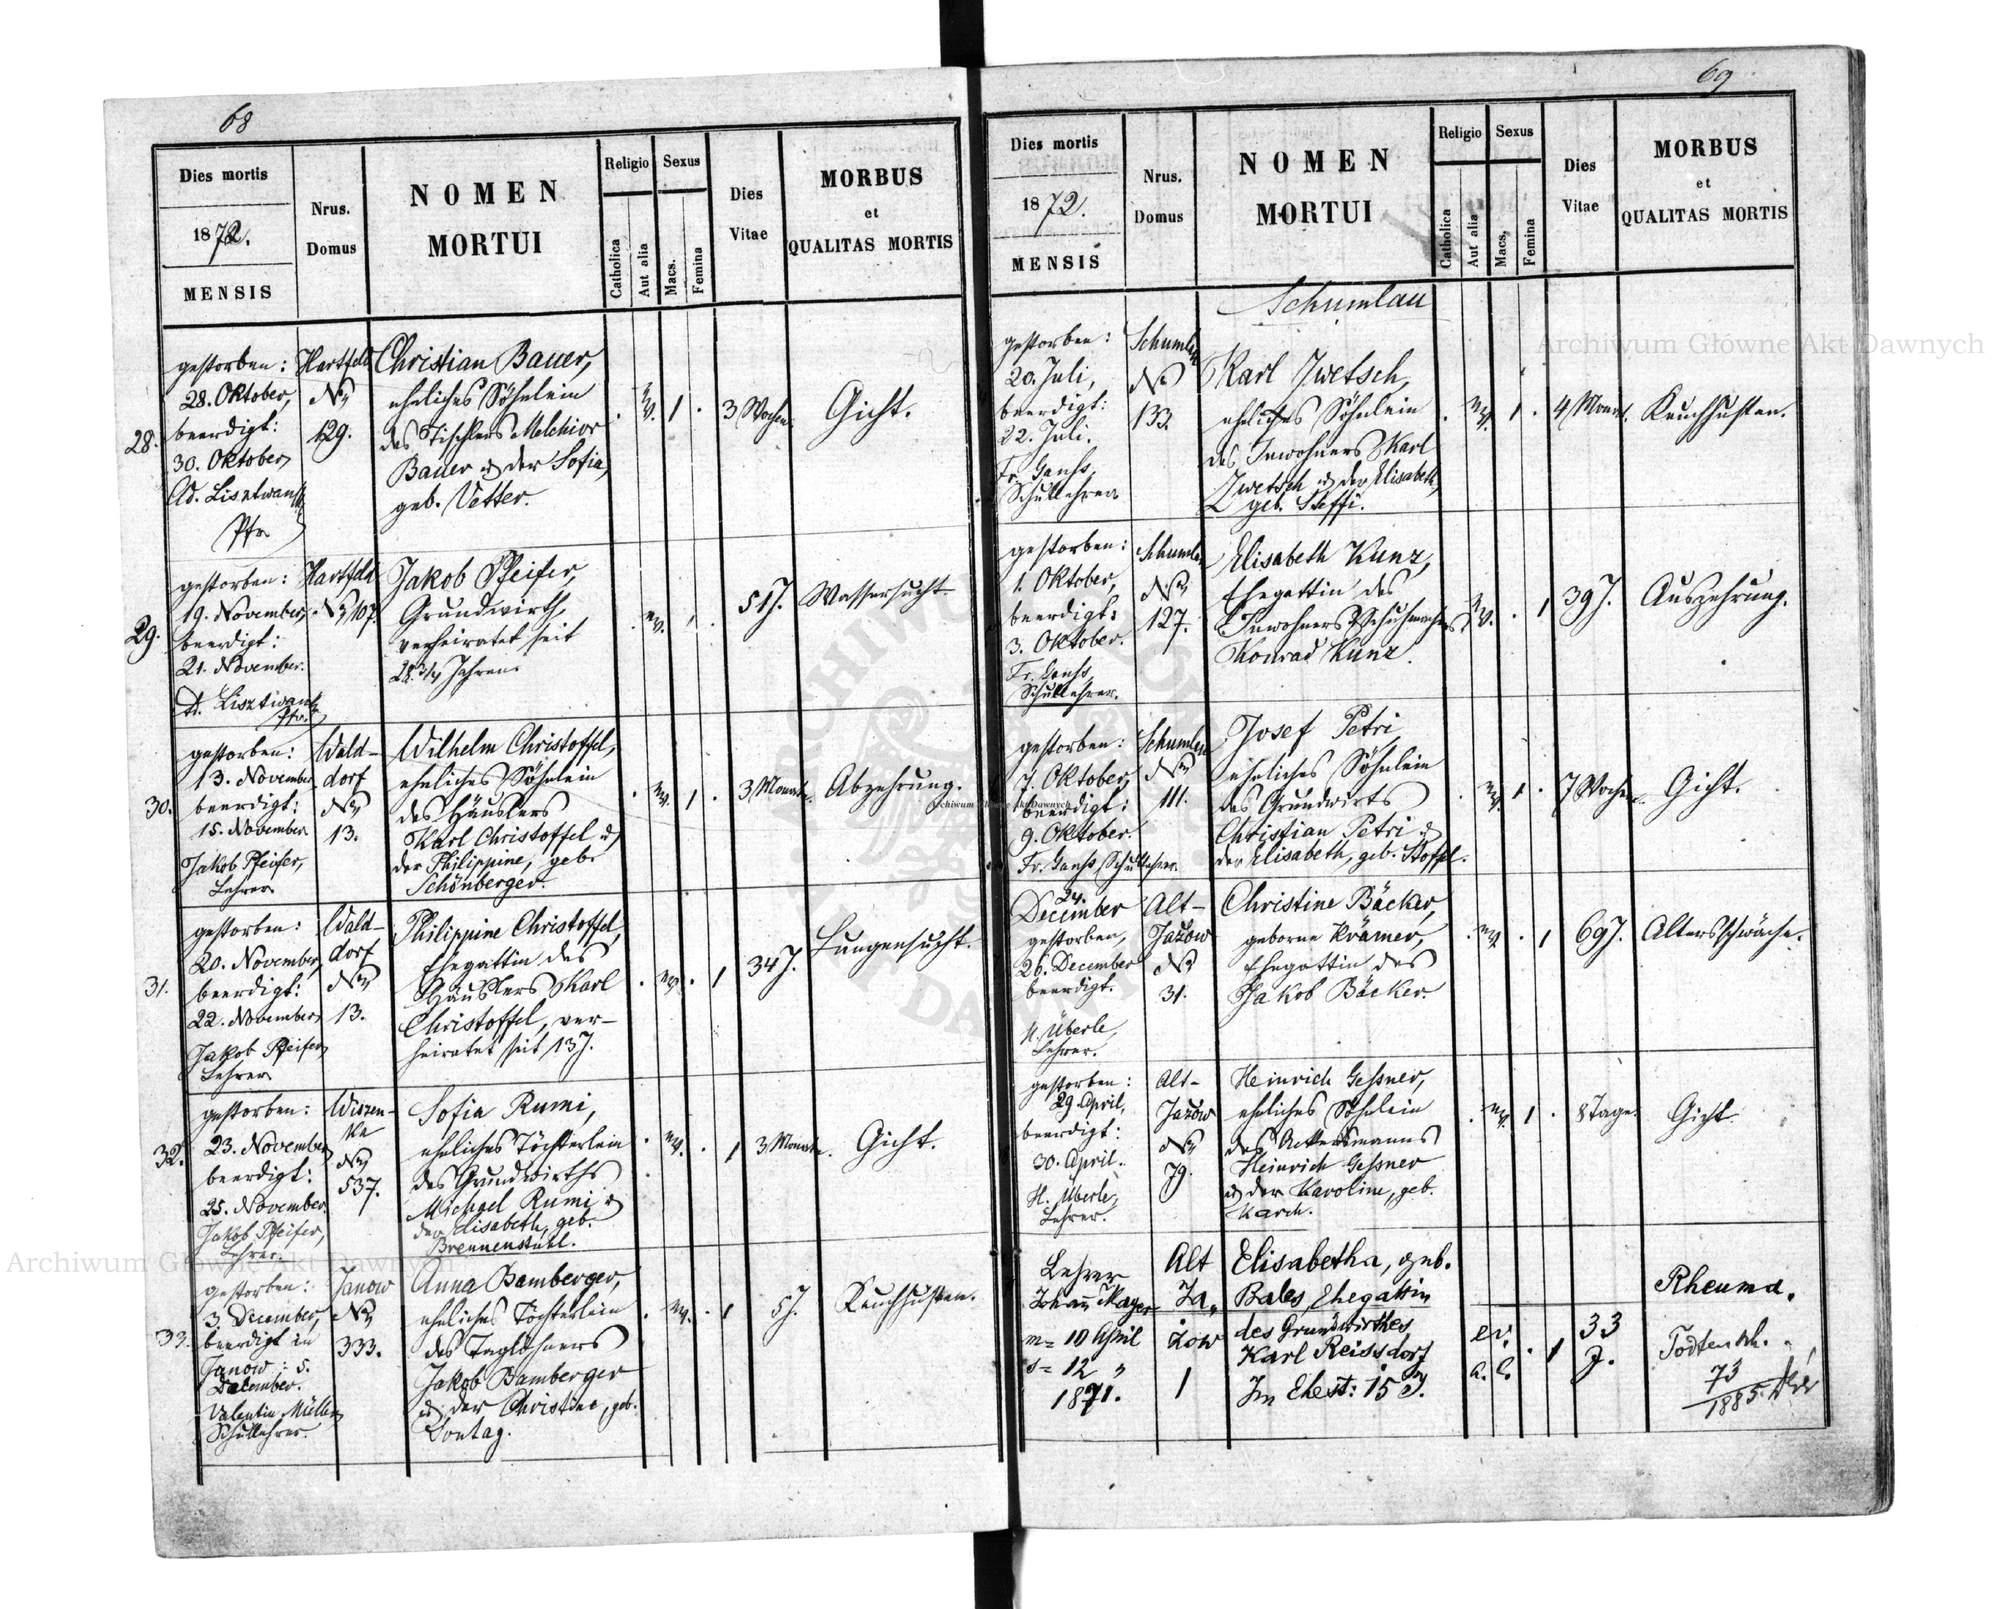 68
Dies mortis
1872.
MENSIS
Nrus.
Domus
NOMEN
MORTUI
Religio
Catholica
Aut alia
Sexus
Macs.
Femina
Dies
Vitae
MORBUS
et
QUALITAS MORTIS
28.
gestorben:
28. Oktober,
beerdigt:
30. Oktober
Pfr.
Hartfeld
No
129.
Christian Bauer,
eheliches Söhnlein
des Tischlers Melchior
Bauer u. der Sofia,
geb. Vetter.
ev.
1
3 Wochen.
Gicht.
29.
gestorben:
19. November,
beerdigt:
21. November.
Pfr.
Hartfeld
No 107.
Jakob Pfeifer,
Grundwirth,
verheiratet seit
28 3/4 Jahren.
ev.
1
51 J.
Wassersucht.
30.
gestorben:
13. November
beerdigt:
15. November
Jakob Pfeifer,
Lehrer
Wald-
dorf
No
13.
Wilhelm Christoffel,
eheliches Söhnlein
des Häuslers
Karl Christoffel u.
der Philippine, geb.
Schönberger.
ev.
1
3 Monate.
Abzehrung.
31.
gestorben:
20. November,
beerdigt:
22. November
Jakob Pfeifer
Lehrer
Wald-
dorf
No
13.
Philippine Christoffel,
Ehegattin des
Häuslers Karl
Christoffel, ver-
heiratet seit 13 J.
ev.
1
34 J.
Lungensucht.
32.
gestorben:
23. November
beerdigt:
25. November.
Jakob Pfeifer,
Lehrer.
Wiszen-
ka
No
537.
Sofia Rumi,
eheliches Töchterlein
des Grundwirths
Michael Rumi u.
der Elisabeth, geb.
Brennenstuhl.
ev.
1
3 Monate.
Gicht.
33.
gestorben:
3. December,
beerdigt in
Janow: 5.
December.
Valentin Müller
Schullehrer.
Janow
No
333.
Anna Bamberger,
eheliches Töchterlein
des Taglöhners
Jakob Bamberger
u. der Christine, geb.
Dontag.
ev.
1
5 J.
Keuchhusten.
69
Dies mortis
1872.
MENSIS
Nrus.
Domus
NOMEN
MORTUI
Religio
Catholica
Aut alia
Sexus
Macs.
Femina
Dies
Vitae
MORBUS
et
QUALITAS MORTIS
Schumlau
gestorben:
20. Juli,
beerdigt:
22. Juli.
Fr. Ganss,
Schullehrer
Schumlau
No
133.
Karl Zwetsch,
eheliches Söhnlein
des Inwohners Karl
Zwetsch u. der Elisabeth,
geb. Steffi.
ev.
1
4 Monat.
Keuchhusten.
gestorben:
1. Oktober,
beerdigt:
3. Oktober.
Fr. Ganss,
Schullehrer.
Schumlau
No
127.
Elisabeth Kunz,
Ehegattin des
Inwohners u. Schuhmachers
Konrad Kunz.
ev.
1
39 J.
Auszehrung.
gestorben:
7. Oktober,
beerdigt:
9. Oktober.
Fr. Ganss, Schullehrer.
Schumlau
No
111.
Josef Petri,
eheliches Söhnlein
des Grundwirts
Christian Petri u.
der Elisabeth, geb. Stoffel.
ev.
1
7 Wochen.
Gicht.
24.
December
gestorben,
26. December
beerdigt.
H. Überle,
Lehrer.
Alt-
Jazow
No
31.
Christine Bäcker,
geborne Krämer,
Ehegattin des
Jakob Bäcker.
ev.
1
69 J.
Altersschwäche.
gestorben:
29. April,
beerdigt:
30. April.
H. Überle,
Lehrer.
Alt-
Jazow
No
Heinrich Gessner,
eheliches Söhnlein
des Ackersmanns
Heinrich Gessner
u. der Karoline, geb.
Karch.
ev.
1
8 Tage.
Gicht.
Lehrer
Johann Mayer
m= 10 April
s= 12 "
1871.
Alt
Ja„
zow
1
Elisabetha, geb.
Bales, Ehegattin
des Grundwirthes
Karl Reissdorf
Im Ehest: 15 J.
ev.
1
33
J.
Rheuma.
73
1885
Archiwum Główne Akt Dawnych
Archiwum Główne Akt Dawnych
Archiwum Główne Akt Dawnych